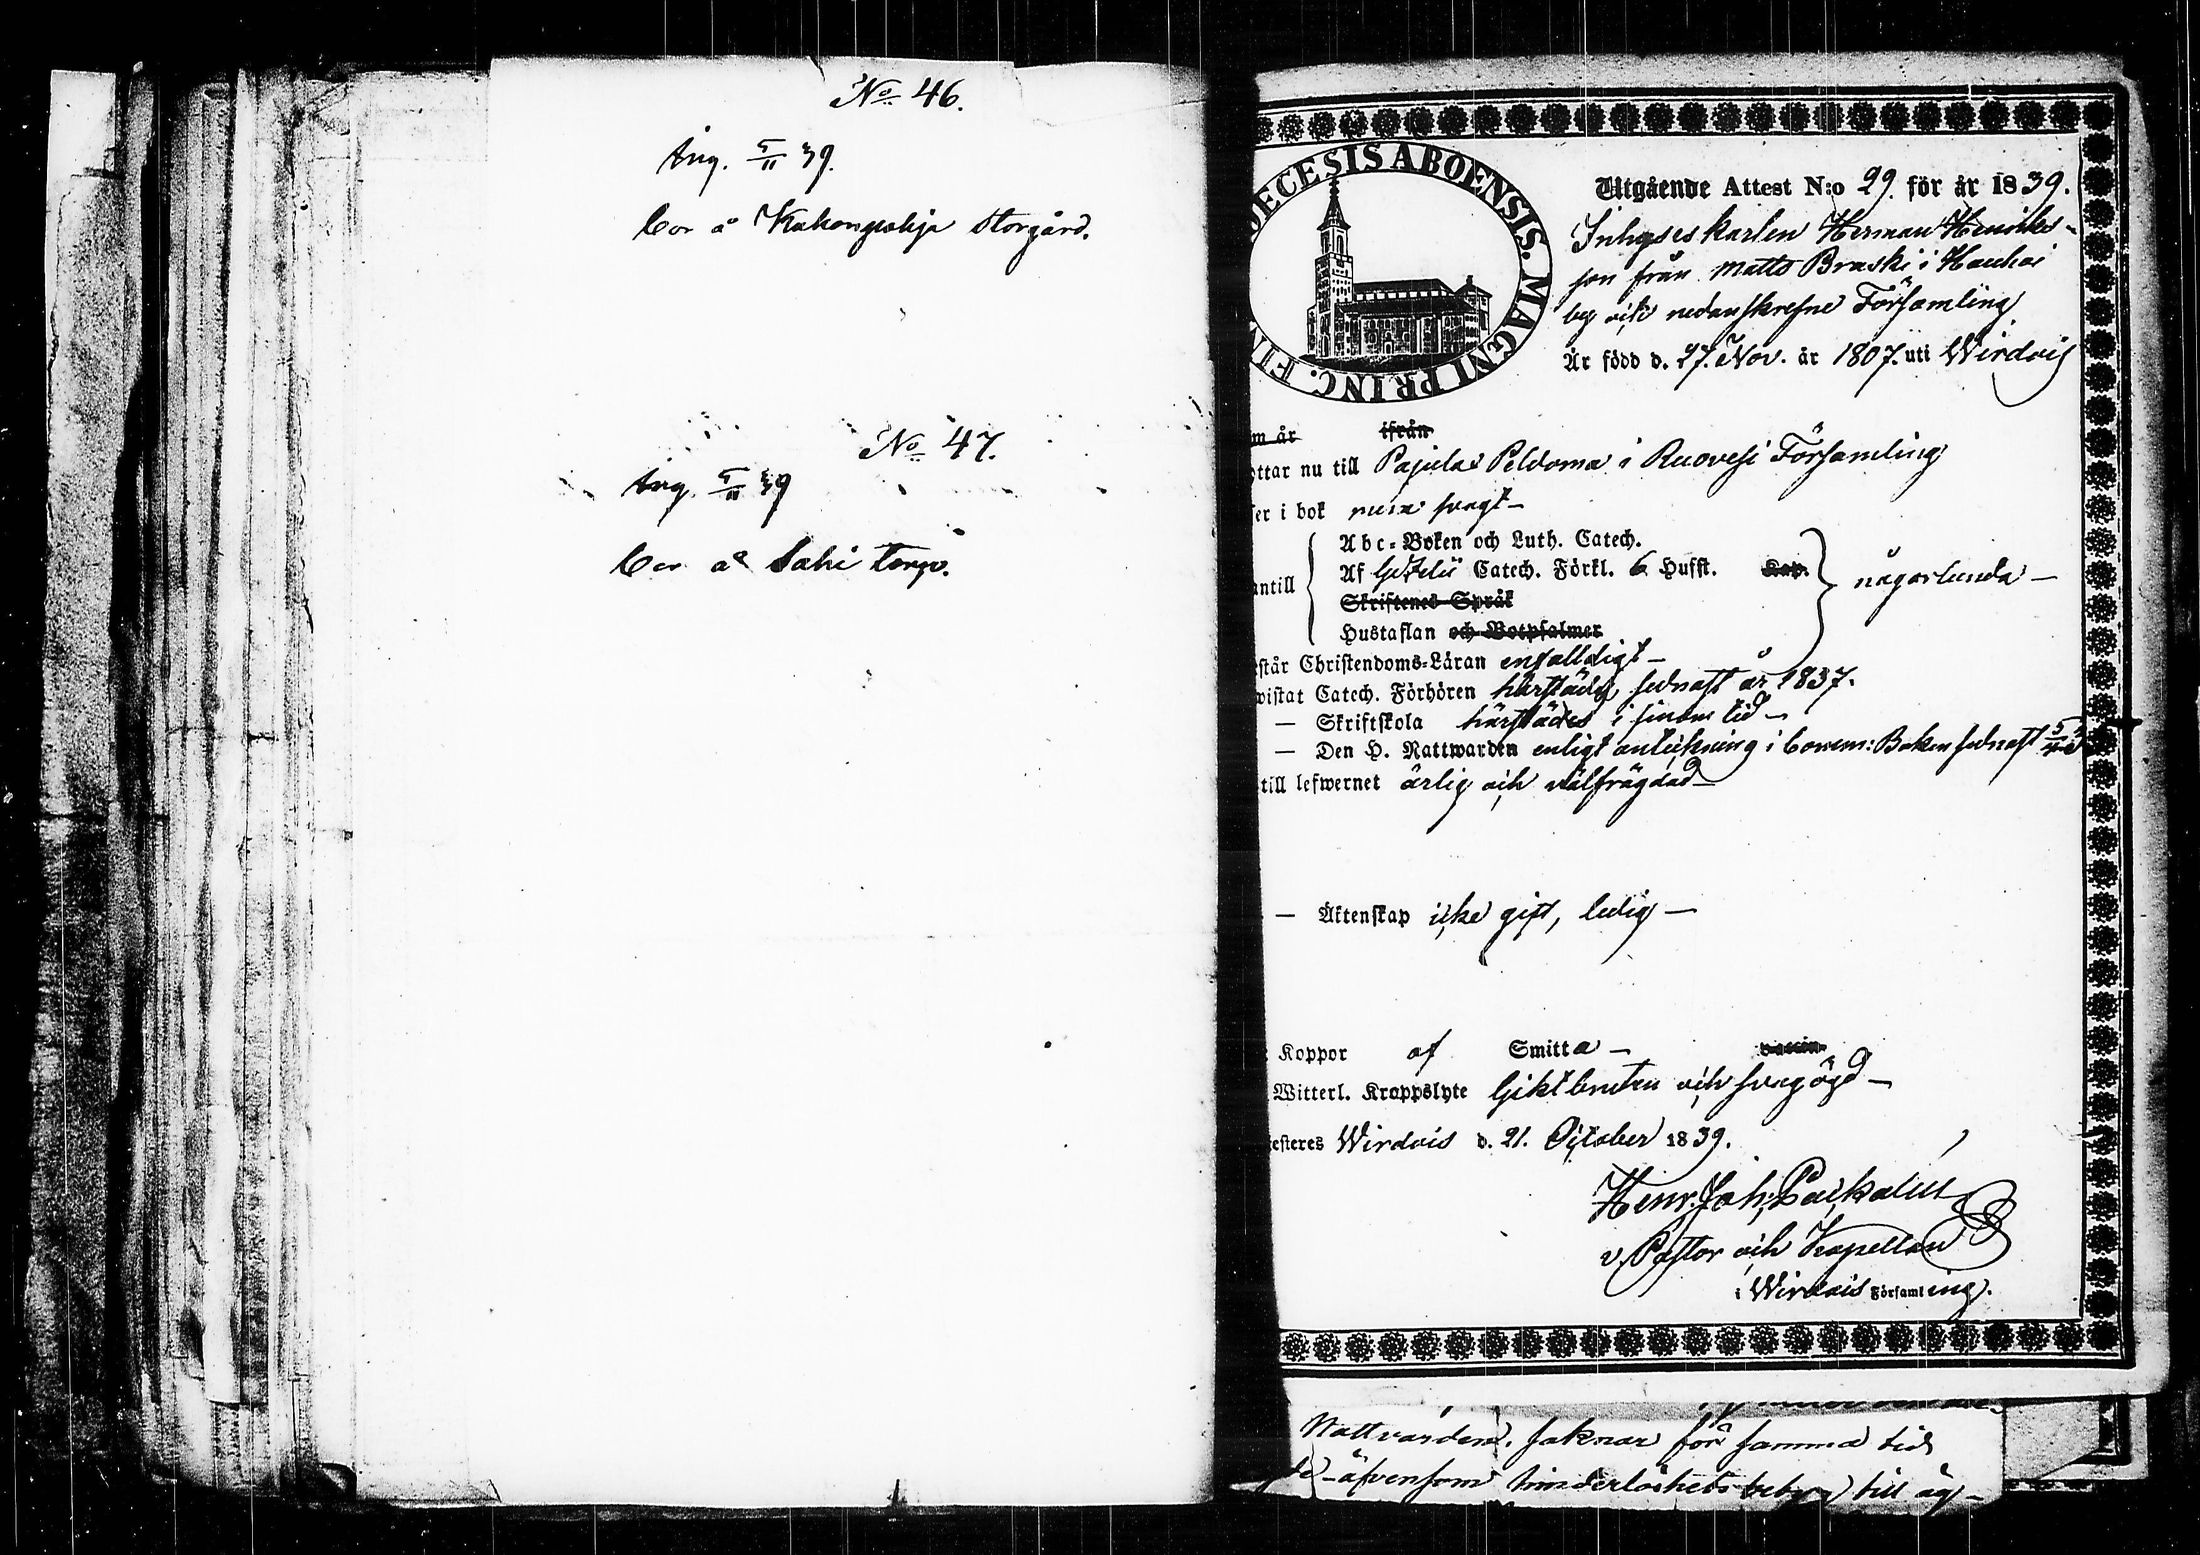 No 46.
Ang. 5/11 39.
bor å Kukonpohja Storgård.
No 47.
Ang. 5/11 39
bor å Sahi torp.
OECESIS ABOENSIS. MAGNI PRINC. FIN
Utgående Attest N:o 29. för år 1839.
Inhyseskarlen Herman Henriks-
son från Matts Braski i Hauhai
by uti nedanskrefne Församling
Är född d. 27. Nov. år 1807. uti Wirdois
m år ifrån
ottar nu till Pajulas Peldoma i Ruovesi Församling
er i bok rena svagt —
Abc-Boken och Luth. Catech.
antill Af Gezelii Catech. Förkl. 6 Hufst. Kap. någorlunda —
Skriftenes Språk
Hustaflan och Botpsalmer
står Christendoms-Läran enfalldigt —
wistat Catech. Förhören härstädes sednast år 1837.
— Skriftskola härstädes i sinom tid —
— Den H. Nattwarden enligt anteckning i Comm: Boken sednast
till lefwernet ärlig och välfrägdad —
— Äktenskap icke gift, ledig —
Koppor af Smitta — Vaccin.
Witterl. Kroppslyte Giktbruten och svagögd —
esteres Wirdois d. 21. October 1839.
Henr. Joh.
v. Pastor och Kapellan
i Wirdois Församling.
Nattvarden. saknar för samma tid
äfvensom hinderlöshets betyg till äg-